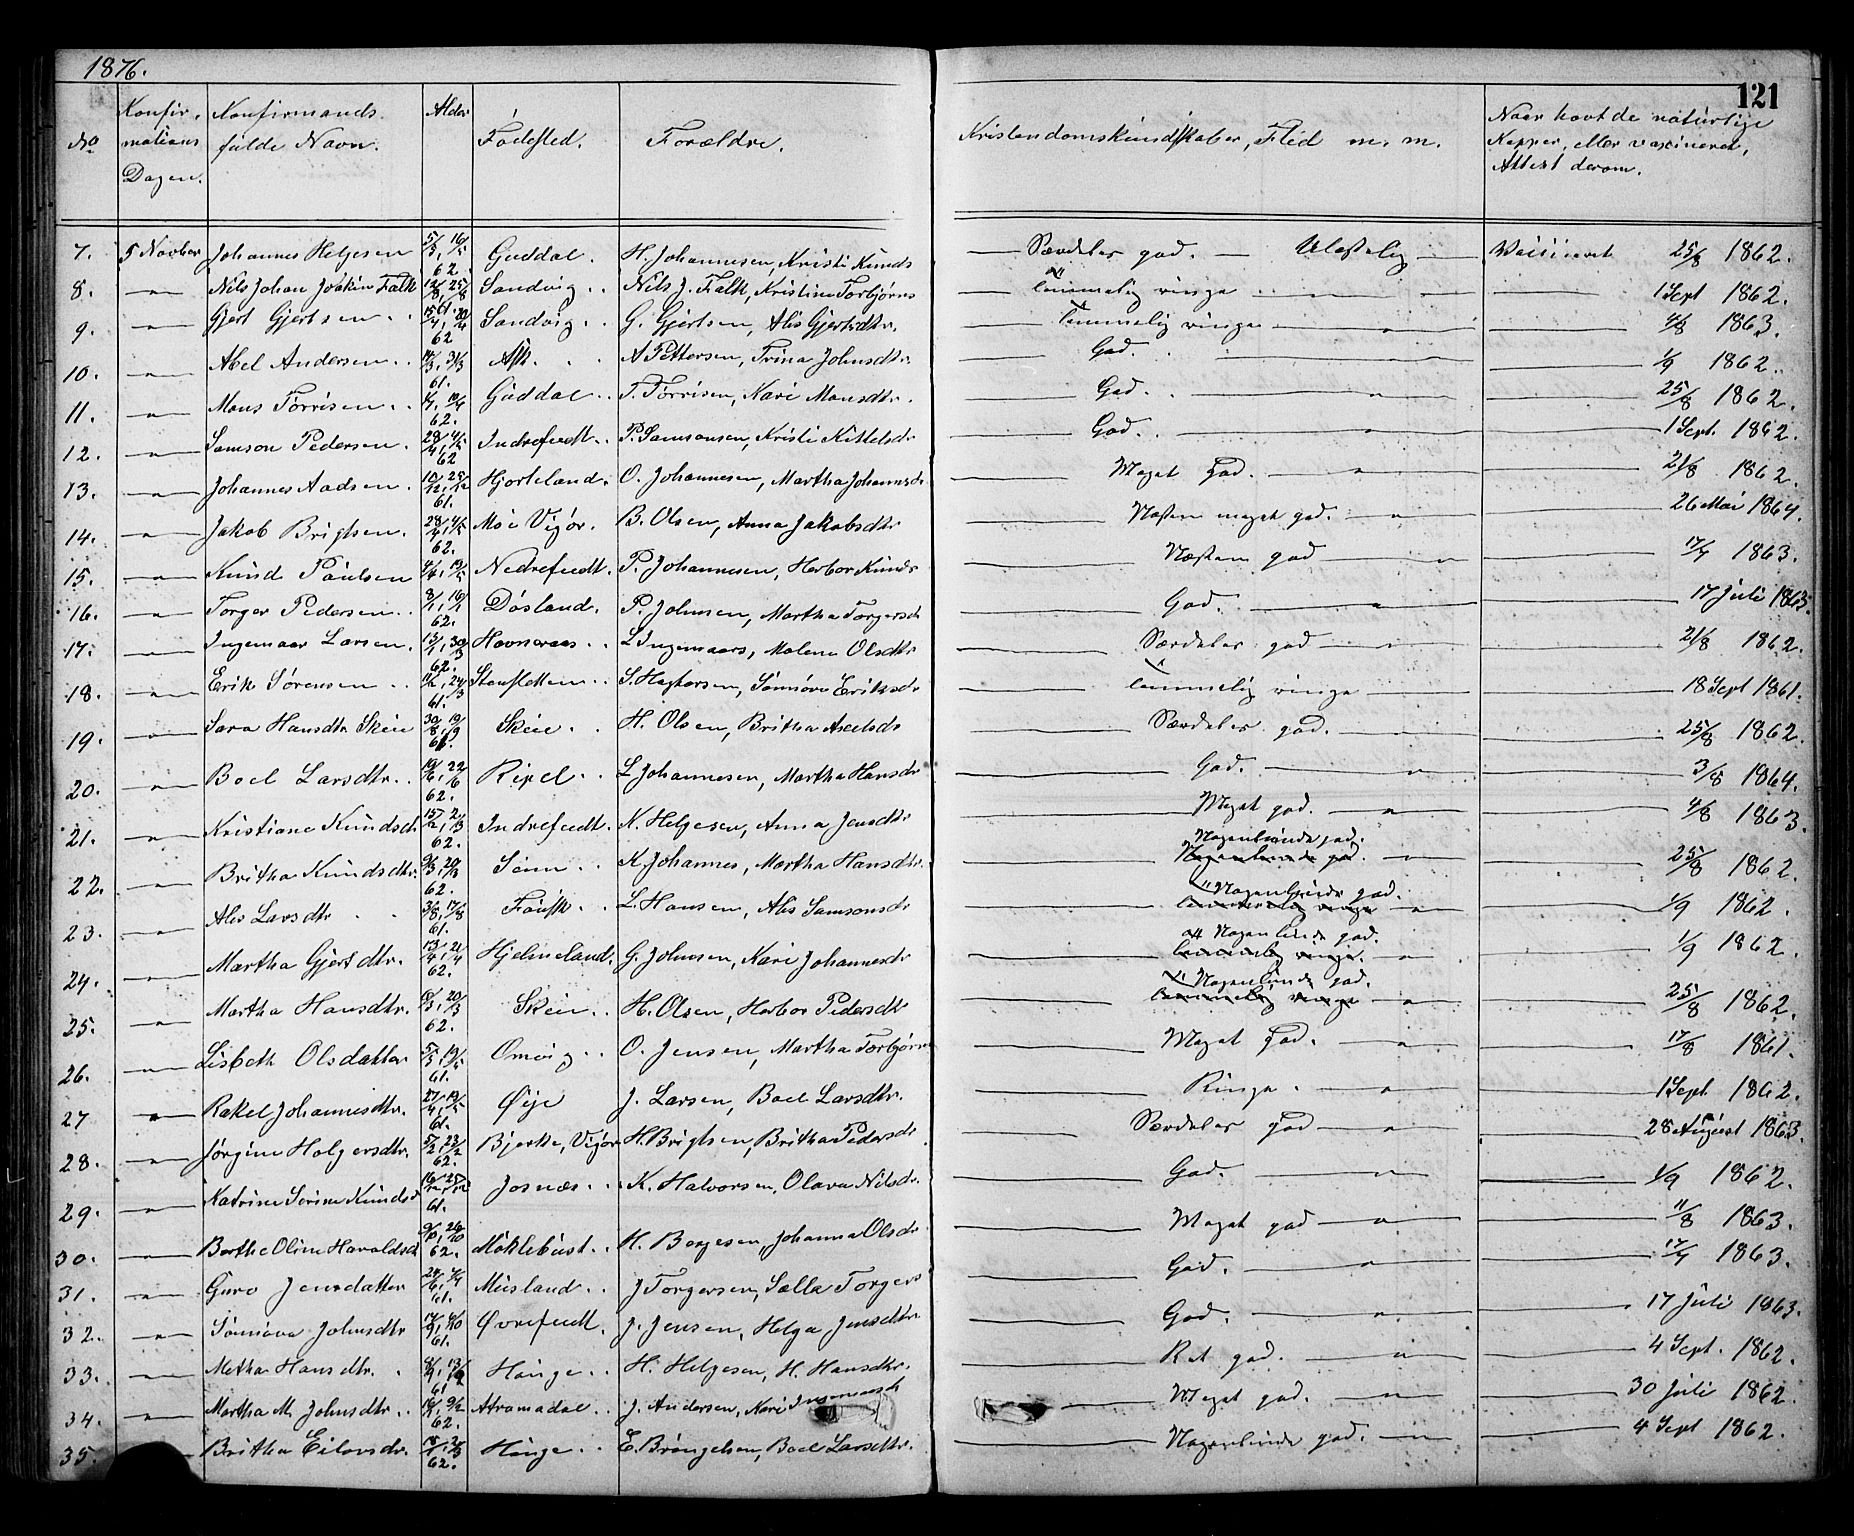 1876.
121
No
Konfir-
mations
Dagen.
Konfirmands
fulde Navn.
Alder
Födested.
Forældre.
Kristendomskundskaber, Flid m. m.
Naar havt de naturlige
Kopper, eller vaxineret,
Attest derom.
7. 5 Novber Johannes Helgesen 5/3, 16/5 62. Guddal. H. Johannesen, Kristi Knuds — Særdeles god. — Ulastelig — Vaxineret 25/8 1862.
8. — " — Nils Johan Joakim Falk 12/8 25/8 61. Sandvig .. Nils J. Falk, Kristine Torbjörns — temmelig ringe — " — 1 Sept 1862.
9. — " — Gjert Gjertsen .. 62 Sandvig .. G. Gjertsen, Alis Gjertsdtr. — temmelig ringe — " — 4/8 1863.
10. — " — Abel Andersen .. 14/3, 31/3 61. Ask. . A Pettersen, Trina Johnsdtr. — God. — " — 1/9 1862.
11. — " — Mons Törrisen .. 62. Guddal .. T. Törrisen, Kari Monsdtr. — God. — " — 25/8 1862.
12. — " — Samson Pedersen. 62 Indrefeedt .. P. Samsonsen, Kristi Kittelsdr — God. — " — 1 Sept. 1862.
13. — " — Johannes Aadsen. 10/12, 25/12 61. Hjorteland. O. Johannesen, Martha Johannesdr — Meget God. — " — 21/8 1862.
14. — " — Jakob Brigtsen. 62. Moe Vigör. B. Olsen, Anna Jakobsdtr — Næsten meget god. — " — 26 Mai 1864.
15. — " — Knud Paulsen Nedrefeedt. P. Johannesen, Herbor Knuds — Næsten god — " — 17/7 1863.
16. — " — Torger Pedersen .. 8/1, 16/1 62. Dösland. P. Johnsen, Martha Torgersd — God. — " — 17 Juli 1863.
17. — " — Ingemaar Larsen. 13/1, 30/3 62. Havneraas .. L Ingemaars, Malena Olsdtr — Særdeles god — " — 21/8 1862.
18. — " — Erik Sörensen .. 61. Stensletten .. S. Hegtorsen, Sönnöva Eriksdr — temmelig ringe — 18 Sept 1861.
19. — " — Sara Hansdtr Skeie 30/8, 19/9 61. Skeie . H. Olsen, Britha Axelsds — Særdeles god. — " — 25/8 1862.
20. — " — Boel Larsdtr .. 22/6 62. Ripel .. L Johannesen, Martha Hansdr — God. — " — 3/8 1864.
21. — " — Kristiane Knudsd 15/2, 2/3 62. Indrefeedt. K. Helgesen, Anna Jensdtr — Meget god. — " — 4/8 1863.
22. — " — Britha Knudsdtr. 9/3, 20/3 62. Sönn .. K. Johannes, Martha Hansdtr. — Nogenlunde god. Nogenlunde god. — " — 25/8 1862.
23. — " — Alis Larsdtr .. 3/8, 17/8 61. Fausk .. L. Hansen, Alis Samsonsdr — Nogenlunde god. temmelig ringe — " — 1/9 1862.
24. — " — Martha Gjertsdtr. 13/4, 21/4 62. Hjelmeland. G. Johnsen, Kari Johannesdr — Nogenlunde god. temmelig ringe. — " — 1/9 1862.
25. — " — Martha Hansdtr. 20/3 62. Skein .. H. Olsen, Herbor Pedersdtr — Nogenlunde god. temmelig ringe — " — 25/8 1862.
26. — " — Lisbeth Olsdatter 5/5, 19/5 61. Omvig .. O. Jensen, Martha Torbjörns — Meget God. — " — 17/8 1861.
27 — " — Rakel Johannesdtr. 61. Øije J. Larsen, Boel Larsdtr. — Ringe. — " — 1 Sept. 1862.
28. — " — Jörgine Holgersdtr. 5/2, 23/2 62. Bjerke, Vigör H. Brigtsen, Britha Pedersdr — Særdeles God — " — 28 August 1863.
29. — " — Katrine Serine Knudsd 16/12, 25/12 61. Josnæs .. K. Halvorsen, Olava Nilsdr. — God. — " — 1/9 1862.
30. — " — Berthe Oline Haraldsd 26/10 62. Möklebust .. H. Borgesen, Johanna Olsdr — Meget god — " — 11/8 1863.
31. — " — Guro Jensdatter 61. Musland .. J Torgersen, Sella Torgers — God. — " — 17/7 1863.
32. — " — Sönnöva Johnsdtr 61. Øvrefeedt. J. Jensen, Helga Jensdtr — God. — " — 17 Juli 1863.
33. — " — Metha Hansdtr. . 61 Hauge .. H. Helgesen, H. Hansdtr. — Ret god. — " — 4 Sept. 1862.
34. — " — Martha M. Johnsdtr. .. 62. Atramadal .. J. Andersen, Kari Ingemarsd — Meget god. — " — 30 Juli 1862.
35. Britha Eilevsdr. 62. Hauge .. E. Bröngelsen, Boel Larsdtr. — Nogenlunde god. — " — 4 Sept 1862.